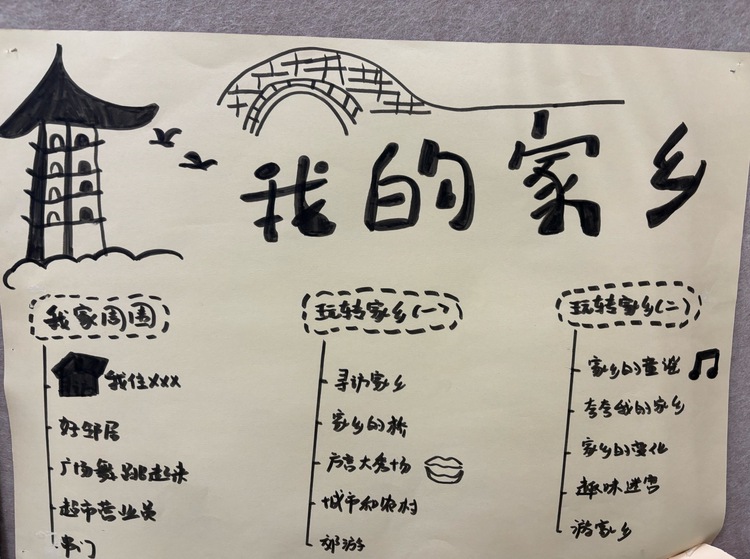 我的家乡
我家周围
我住xxx
好邻居
广场舞跳起来
超市营业员
串门
玩转家乡(一)
寻访家乡
家乡的桥
方言大秀场
城市和农村
郊游
玩转家乡(二)
家乡的童谣
夸夸我的家乡
家乡的变化
趣味迷宫
游家乡